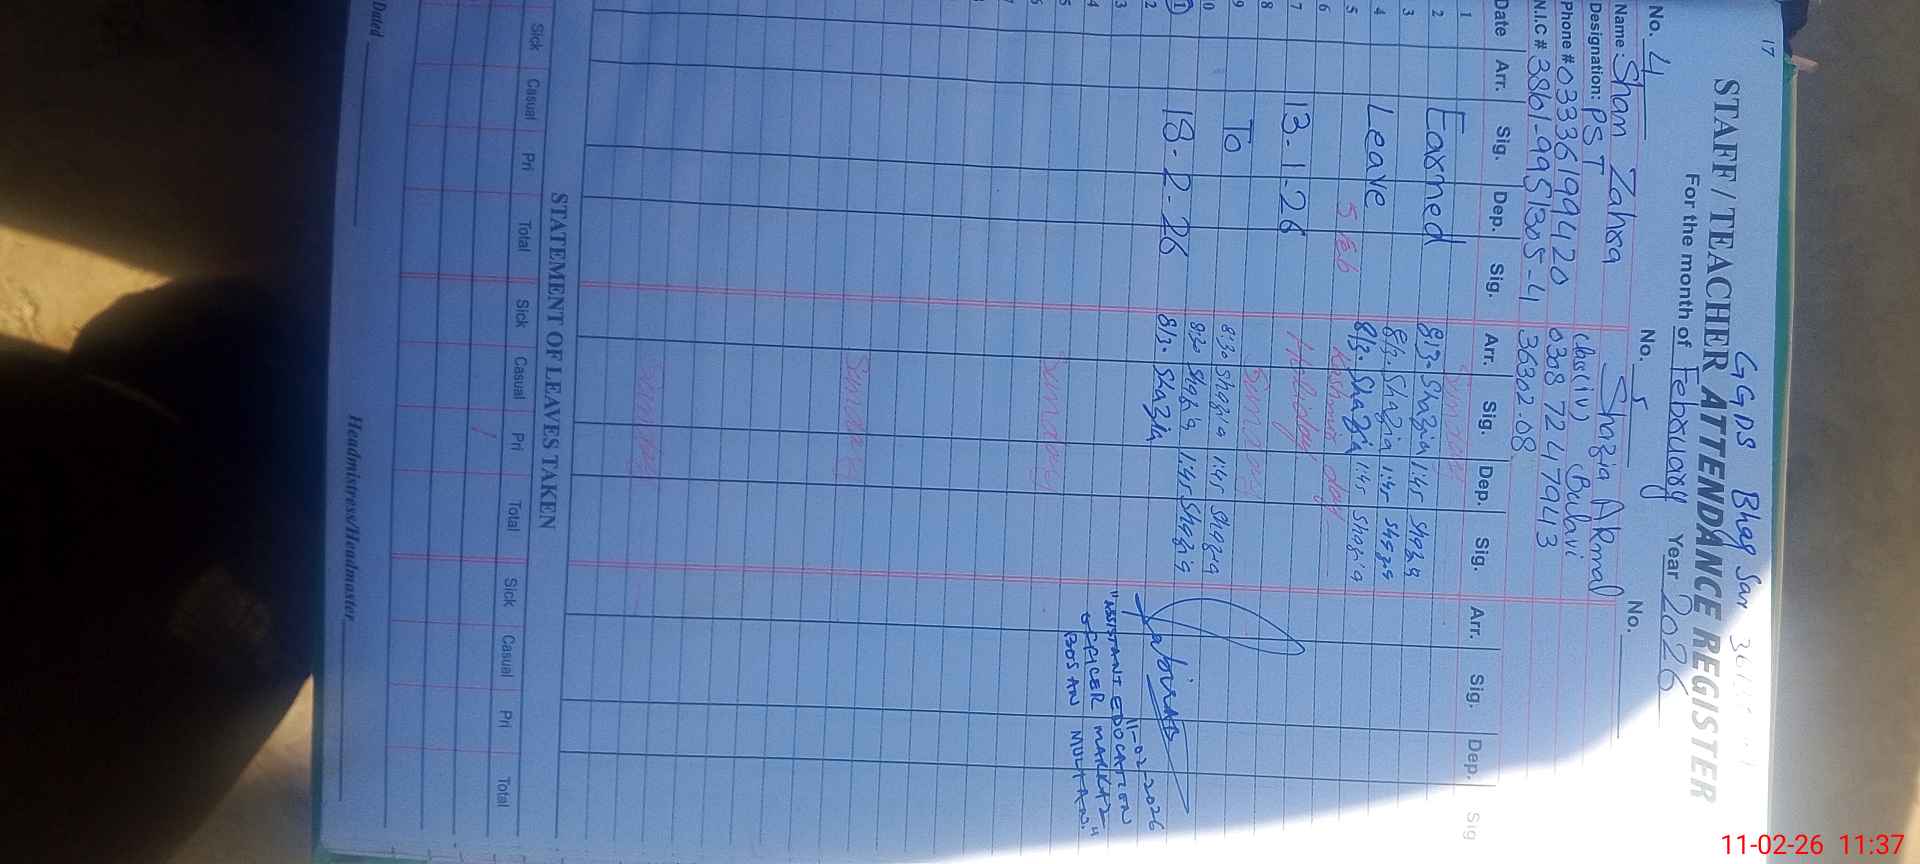 17
GGPS Bhag Sar
STAFF / TEACHER ATTENDANCE REGISTER
For the month of February Year 2026
No. 4 No. 5 No.
Name Shan Zahra Shazia Akmal
Designation: PST class (IV) (Bulavi
Phone # 03336199420 0308 7247943
N.I.C # 36302-08
Date Arr. Sig. Dep. Sig. Arr. Sig. Dep. Sig. Arr. Sig. Dep. Sig
1 Sunday
2 Earned 8:30 Shazia 1:45 Shazia
3 8:30 Shazia 1:45 Shazia
4 Leave 8:30 Shazia 1:45 Shazia
5 5 Feb Kashmir day
6 Holiday
7 13.1.26
8 Sunday
9 To 8:30 Shazia 1:45 Shazia
10 8:30 Shazia 1:45 Shazia
11 18.2.26 8:30 Shazia
11-02-2026
"ASSISTANT EDUCATION
OFFICER MARKAZ
BOSAN MULTAN."
Sunday
Sunday
Sunday
STATEMENT OF LEAVES TAKEN
Sick Casual Pri Total Sick Casual Pri Total Sick Casual Pri Total
Dated Headmistress/Headmaster
11-02-26 11:37